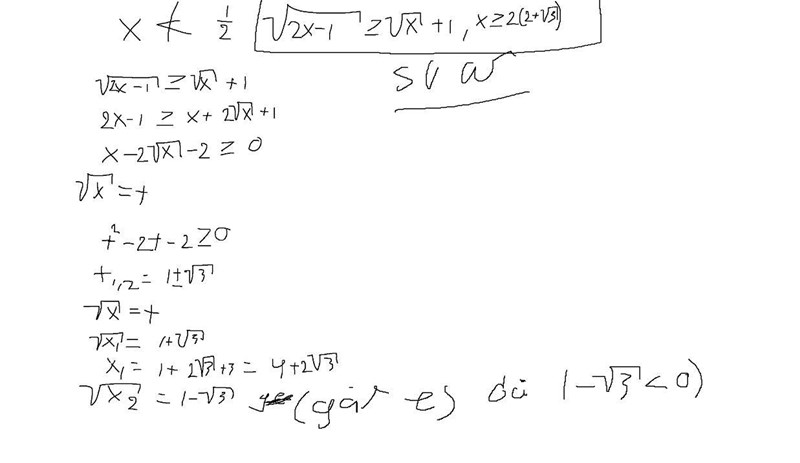 x ≮ 1/2 √(2x-1) ≥ √x + 1, x ≥ 2(2+√3)
SVAR
√(2x-1) ≥ √x + 1
2x-1 ≥ x + 2√x + 1
x - 2√x - 2 ≥ 0
√x = t
t² - 2t - 2 ≥ 0
t₁,₂ = 1 ± √3
√x = t
√x₁ = 1+√3
x₁ = 1 + 2√3 + 3 = 4+2√3
√x₂ = 1-√3 (går ej då 1-√3 < 0)